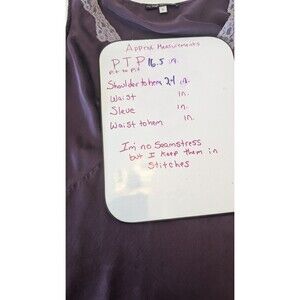 Approx Measurements
P.T.P 16.5 in.
pit to pit
Shoulder to hem 24 in.
Waist in.
Sleve in.
Waist to hem in.
I'm no Seamstress
but I keep them in
Stitches